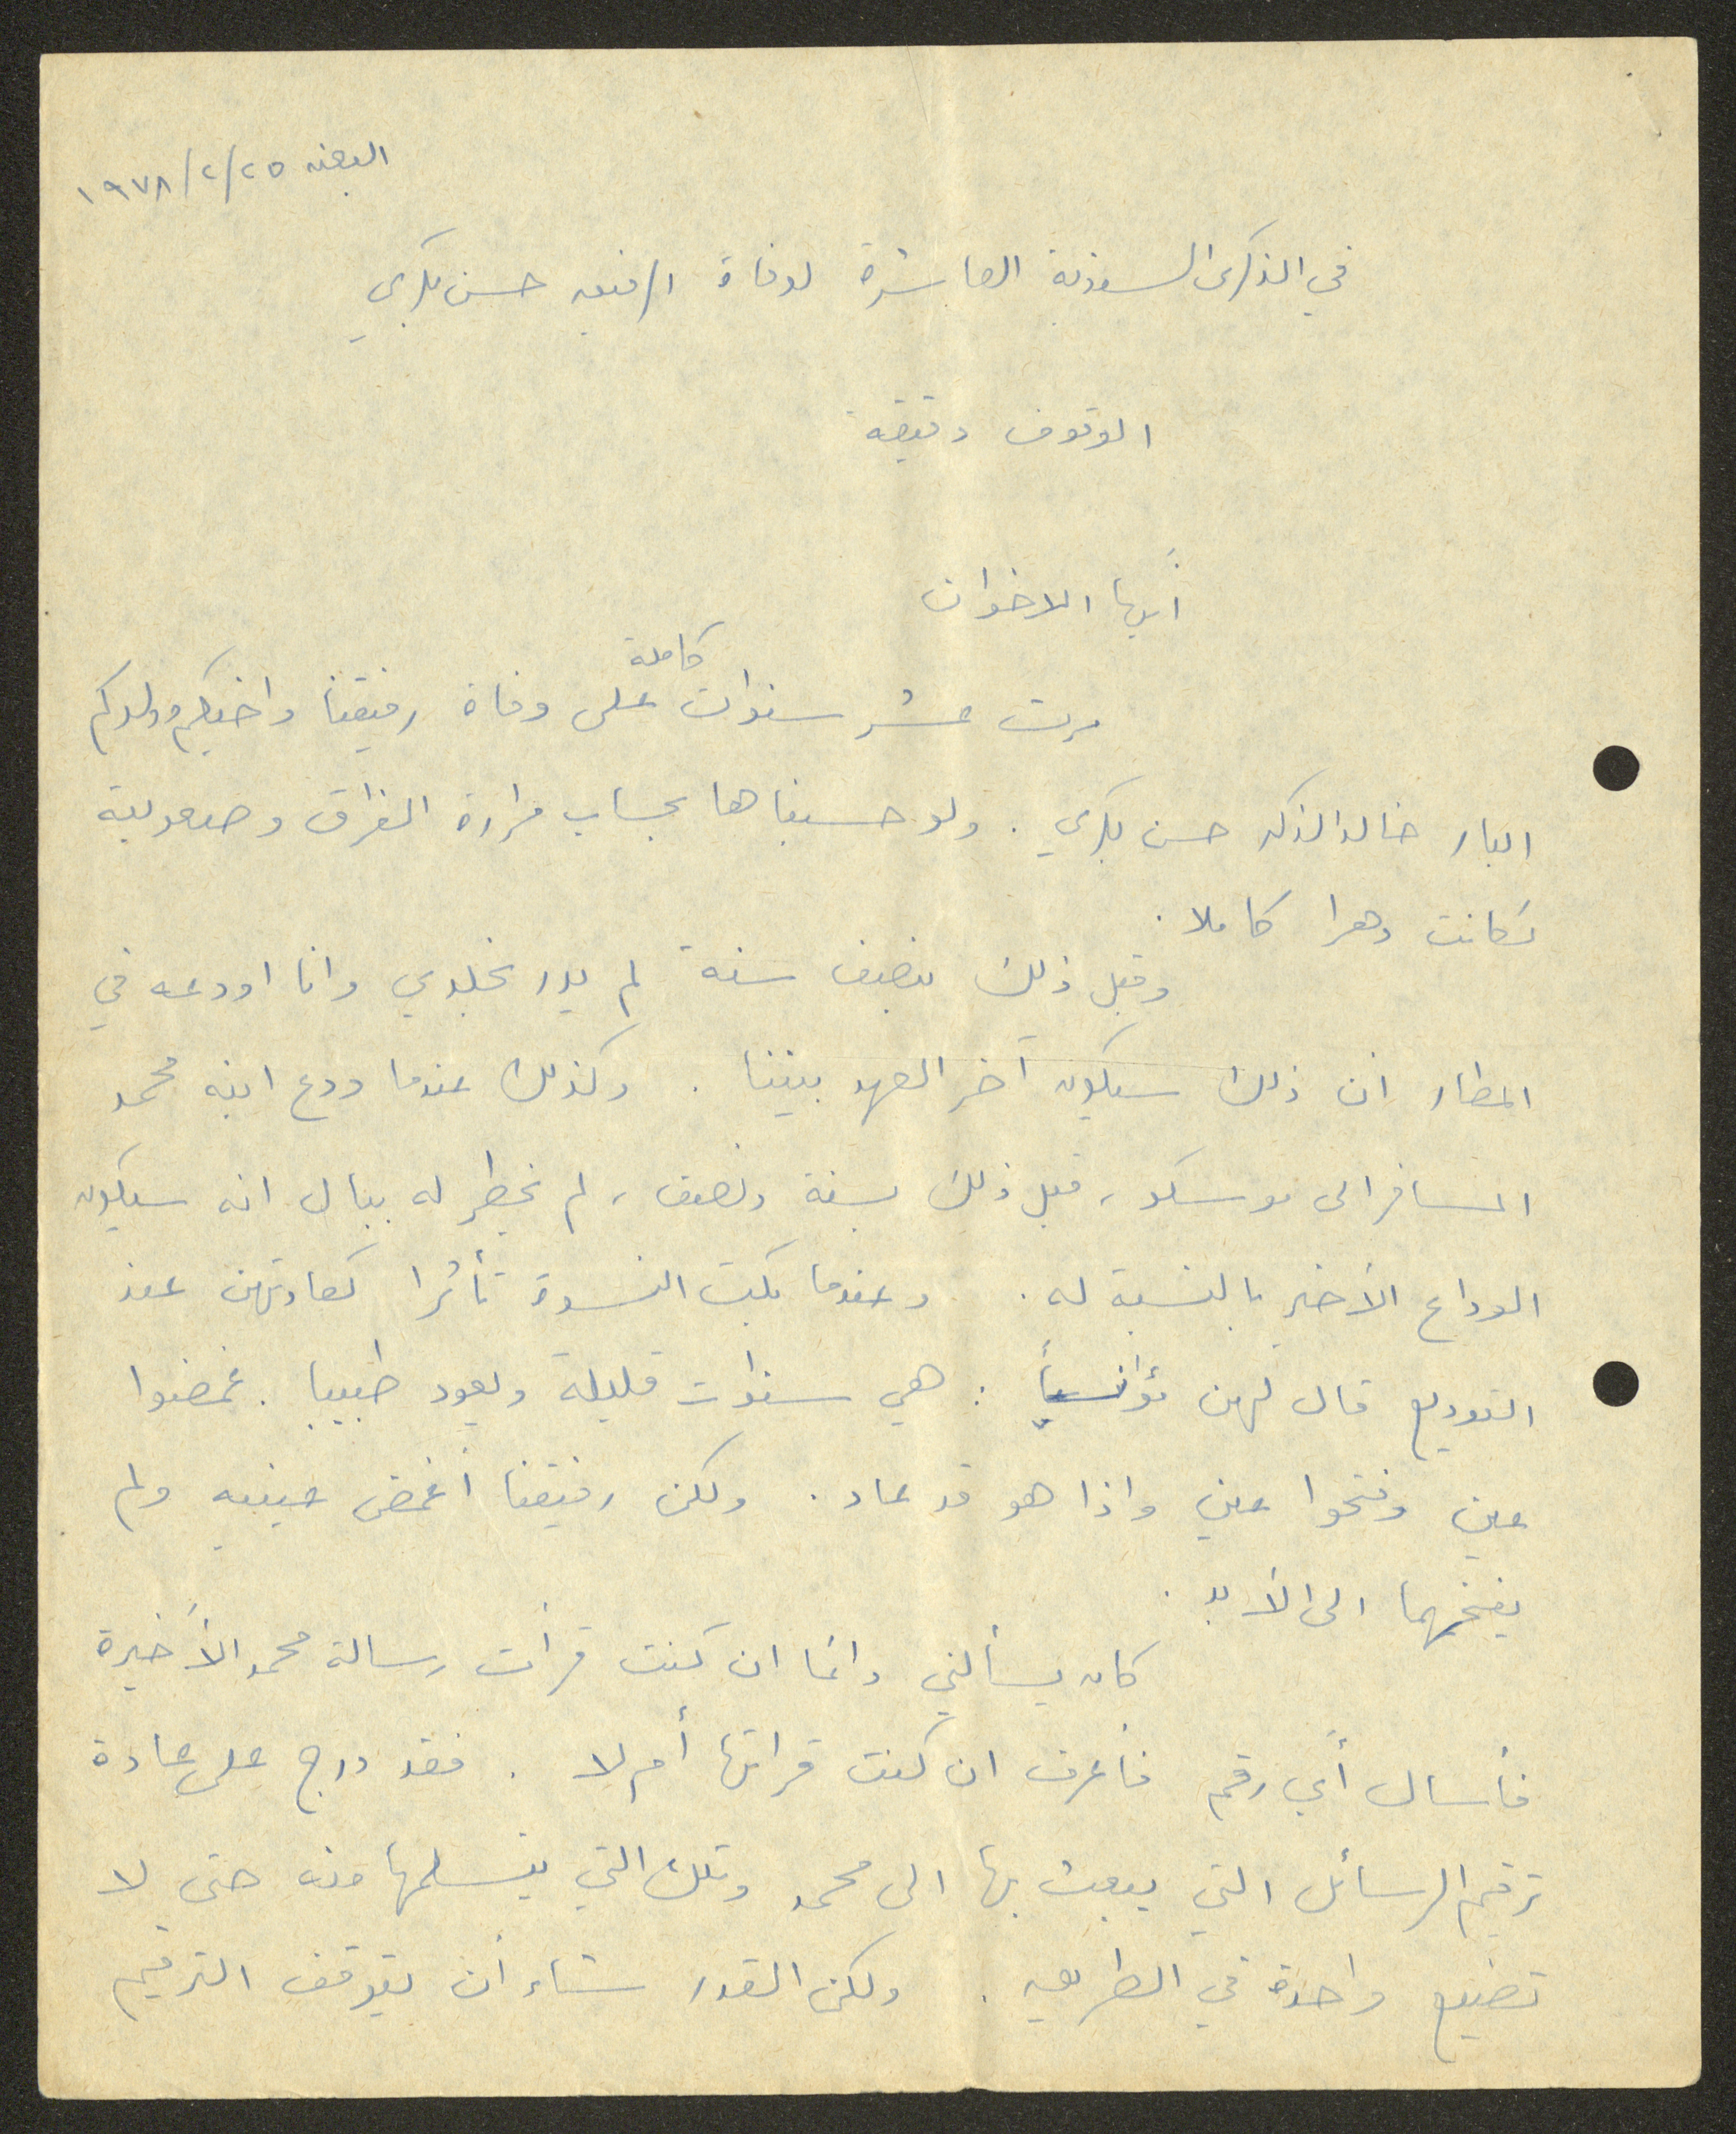 البعنه ٢٥/٢/١٩٧٨
في الذكرى السنوية العاشرة لوفاة الرفيق حسن بكري
الوقوف دقيقة
أيها الاخوان
مرت عشر سنوات كاملة على وفاة رفيقنا واخيكم وولدكم
البار خالد الذكر حسن بكري . ولو حسبناها بحساب مرارة الفراق وصعوبته
لكانت دهرا كاملا .
وقبل ذلك بنصف سنة لم يدر بخلدي وانا اودعه في
المطار ان ذلك سيكون آخر العهد بيننا . وكذلك عندما ودع ابنه محمد
المسافر الى موسكو ، قبل ذلك بسنة ونصف ، لم يخطر له ببال انه سيكون
الوداع الأخير بالنسبة له . وعندما بكت النسوة تأثرا كعادتهن عند
التوديع قال لهن مؤانسياً : هي سنوات قليلة ويعود طبيبا . غمضوا
عين وفتحوا عين واذا هو قد عاد . ولكن رفيقنا أغمض عينيه ولم
يفتحهما الى الأبد .
كان يسألني دائما ان كنت قرأت رسالة محمد الأخيرة
فأسأل أي رقم فاعرف ان كنت قراتها أم لا . فقد درج على عادة
ترقيم الرسائل التي يبعث بها الى محمد وتلك التي يتسلمها منه حتى لا
تضيع واحدة في الطريق . ولكن القدر شاء أن يتوقف الترقيم